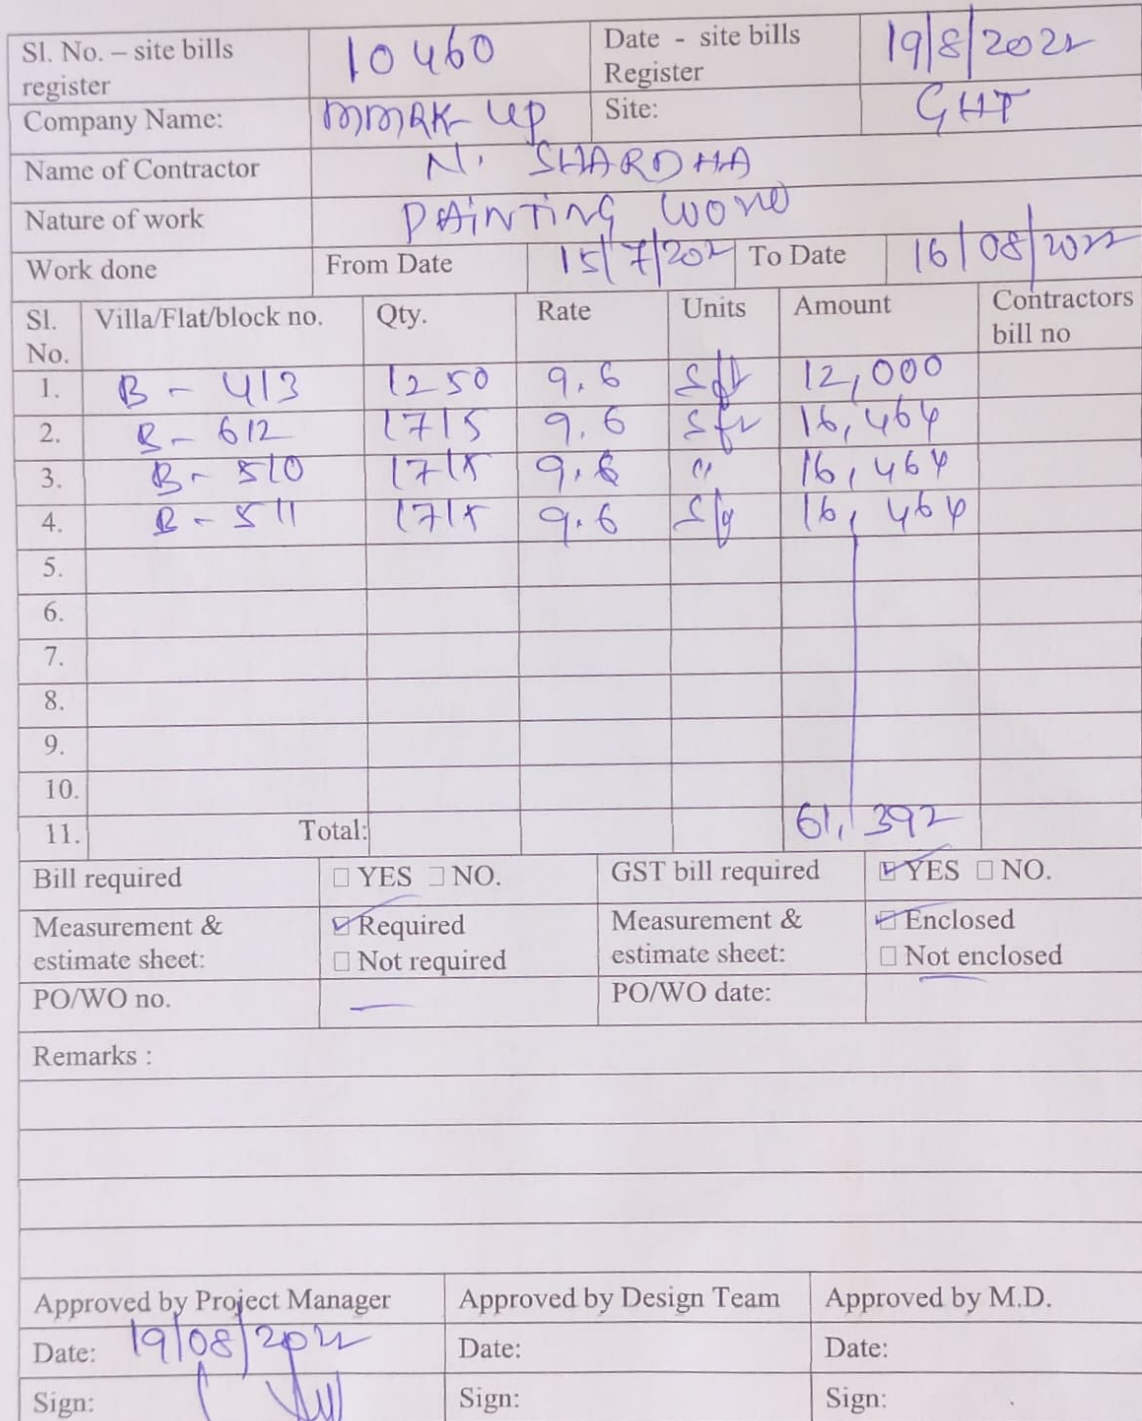 Sl. No. – site bills register 10460 Date - site bills Register 19/8/2022
Company Name: MMRK UP Site: GHT
Name of Contractor N. SHARDHA
Nature of work PAINTING WORK
Work done From Date 15/7/202 To Date 16/08/2022
Sl. No. Villa/Flat/block no. Qty. Rate Units Amount Contractors bill no
1. B - 413 1250 9.6 Sft 12,000
2. B - 612 1715 9.6 Sft 16,464
3. B - 510 1715 9.6 " 16,464
4. B - 511 1715 9.6 Sft 16,464
5.
6.
7.
8.
9.
10.
11. Total: 61,392
Bill required ☐ YES ☐ NO. GST bill required ☑ YES ☐ NO.
Measurement & estimate sheet: ☑ Required ☐ Not required Measurement & estimate sheet: ☑ Enclosed ☐ Not enclosed
PO/WO no. — PO/WO date: —
Remarks :
Approved by Project Manager Approved by Design Team Approved by M.D.
Date: 19/08/2022 Date: Date:
Sign: Sign: Sign: